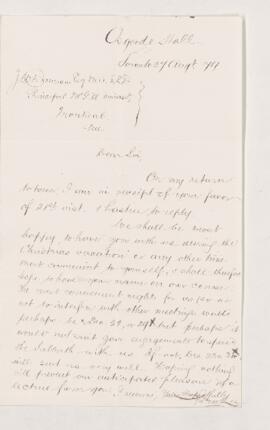 Osgoode Hall
Toronto 27 Augt /79
J. W. Dawson Esq M.A. LL.D.
Principal McGill
Montreal
Dear Sir,
On my return
to town I am in receipt of your favor
of 21st inst. & hasten to reply.
We shall be most
happy to have you with us during the
Christmas vacation or any other time
most convenient to yourself, & shall therefore
hope to have you name on our course.
The most convenient night for us so as
not to interfere with other meetings would
perhaps be Dec. but perhaps it
would not suit your engagements to spend
the Sabbath with us. If not, Dec.
will suit us very well. Hoping nothing
will prevent our anticipated pleasure of a
lecture from you I remain,